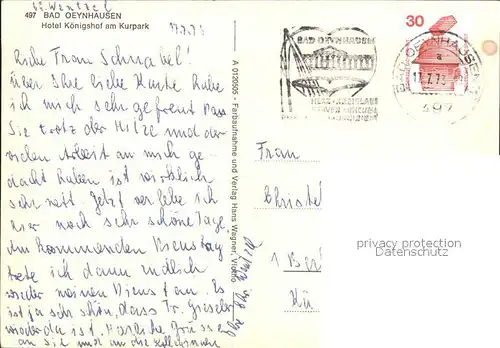 497 BAD OEYNHAUSEN
Hotel Königshof am Kurpark
17.7.73
Liebe Frau Schnabel!
Über Ihre liebe Karte habe
ich mich sehr gefreut. Dass
Sie trotz der Hitze und der
vielen Arbeit an mich ge-
dacht haben ist wirklich
sehr nett. Jetzt verlebe ich
hier noch sehr schöne Tage,
am kommenden Dienstag
trete ich dann endlich
wieder meinen Dienst an. Es
ist ja sehr schön, dass Fr.
wieder da ist. Herzliche Grüsse
an Sie und an die Kolleginnen
A 0125505 - Farbaufnahme und Verlag Hans Wagner, Vlotho
BAD OEYNHAUSEN
HERZ-KREISLAUF
30
BAD OEYNHAUSEN
a
17.7.73
497
Frau
Christel
1 Ber
privacy protection
Datenschutz